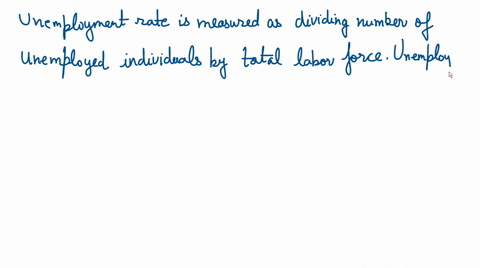 Unemployment rate is measured as dividing number of
Unemployed individuals by total labor force. Unemploy